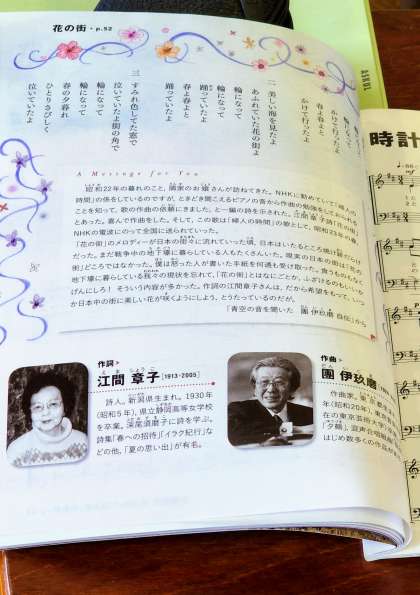 花の街・p.52
かけて行ったよ
春よ春よと
かけて行ったよ
二 美しい海を見たよ
あふれていた花の街よ
輪になって
輪になって
踊っていたよ
春よ春よと
踊っていたよ
三 すみれ色してた窓で
泣いていたよ街の角で
輪になって
輪になって
春の夕暮れ
ひとりさびしく
泣いていたよ
A Message for You
昭和22年の暮れのこと，隣家のお嬢さんが訪ねてきた。NHKに勤めていて「婦人の
時間」の係をしているのですが，ときどき聞こえるピアノの音から作曲の勉強をしておられる
ことを知って，歌の作曲の依頼にきました，と一編の詩を示された。江間章子詩「花の街」
とあった。喜んで作曲をした。そして，この歌は「婦人の時間」の歌として，昭和23年の春，
NHKの電波にのって全国に送られていった。
「花の街」のメロディーが日本の街々に流れていった頃，日本はいたるところ焼け跡だらけ
だった。まだ戦争中の地下壕に暮らしている人もたくさんいた。現実の日本の街は「花の
街」どころではなかった。僕は怒った人が書いた手紙を何通も受け取った。食うものもなく
地下壕に暮らしている我々の現状を忘れて，「花の街」とはなにごとか，ふざけるのもいいか
げんにしろ！ そういう内容が多かった。作詞の江間章子さんは，だから希望をもって，いつ
か日本中の街に美しい花が咲くようにしよう，とうたっているのだが。
「青空の音を聞いた 團 伊玖磨 自伝」から
作詞
江間 章子 [1913-2005]
詩人。新潟県生まれ。1930年
（昭和5年），県立静岡高等女学校
を卒業。深尾須磨子に詩を学ぶ。
詩集「春への招待」「イラク紀行」な
どの他，「夏の思い出」が有名。
作曲
團 伊玖磨
作曲家。東京都生
年（昭和20年），東京
在の東京芸術大学）卒
「夕鶴」，混声合唱組曲
はじめ数多くの作品が
時計